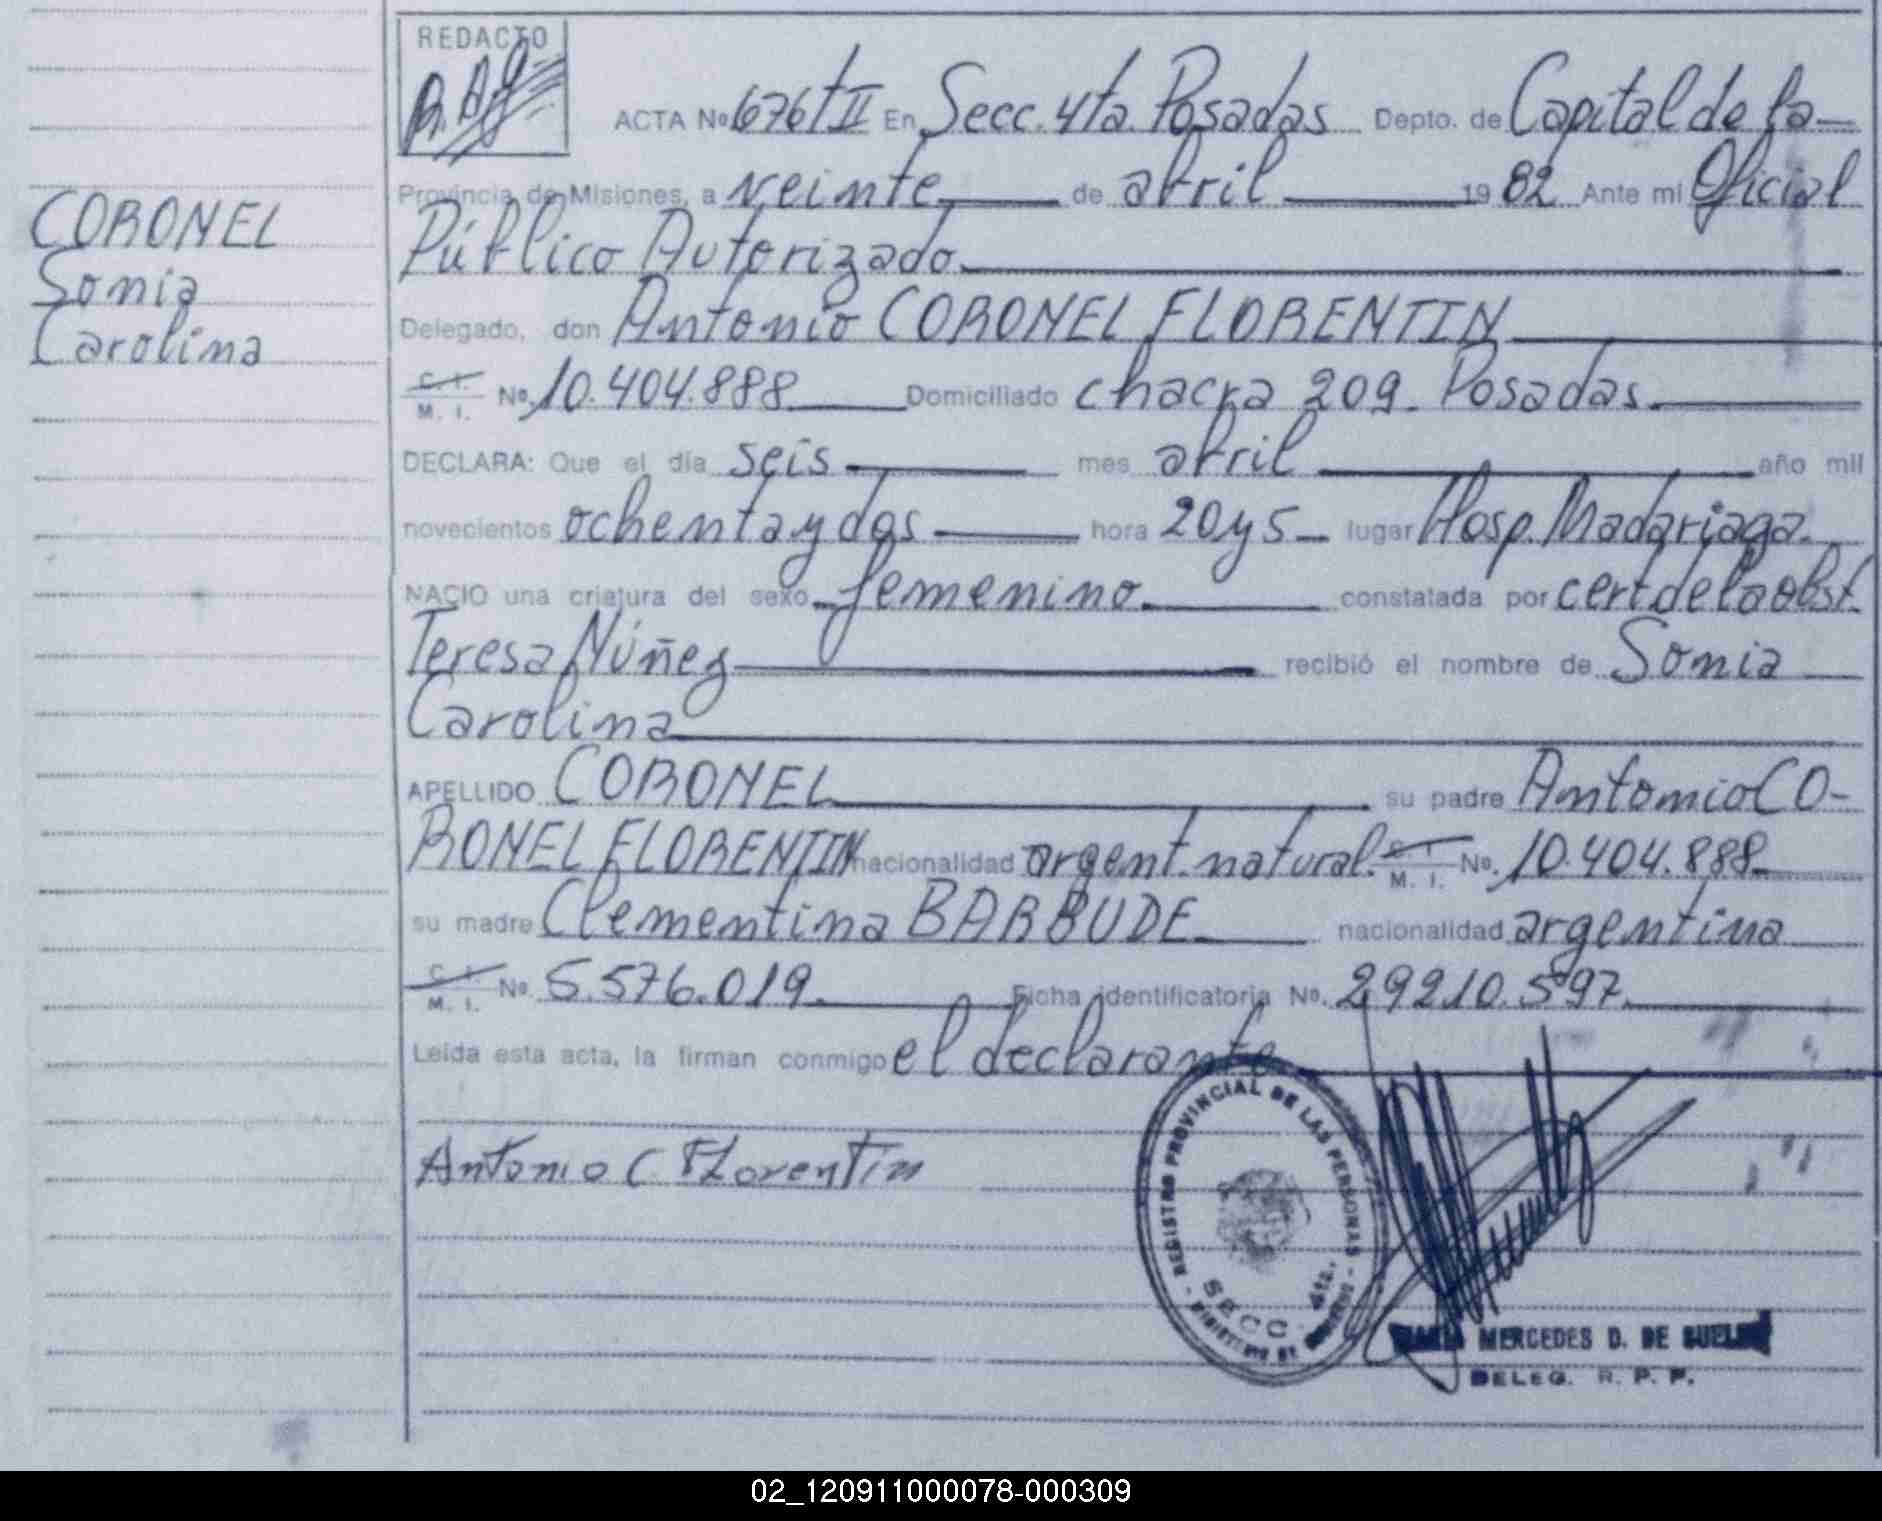 REDACTO
ACTA Nº 676 T II En Secc. 4ta. Posadas Depto. de Capital de la
Provincia de Misiones, a veinte de abril 1982 Ante mi Oficial
Público Autorizado
CORONEL
Sonia
Carolina
Delegado, don Antonio CORONEL FLORENTIN
C. I. M. I. Nº 10.404.888 Domiciliado chacra 209. Posadas.
DECLARA: Que el día seis mes abril año mil
novecientos ochenta y dos hora 20 y 5 lugar Hosp. Madariaga.
NACIO una criatura del sexo femenino constatada por cert de la obst.
Teresa Núñez recibió el nombre de Sonia
Carolina
APELLIDO CORONEL su padre Antonio CO-
RONEL FLORENTIN nacionalidad argent. natural. C. I. M. I. Nº. 10.404.888
su madre Clementina BARBUDE nacionalidad argentina
C. I. M. I. Nº 5.576.019. Ficha identificatoria Nº. 29210.597
Leída esta acta, la firman conmigo el declarante
Antonio C Florentin
REGISTRO PROVINCIAL DE LAS PERSONAS
SECC. 4ta.
MARIA MERCEDES D. DE
DELEG. R. P. P.
02_120911000078-000309